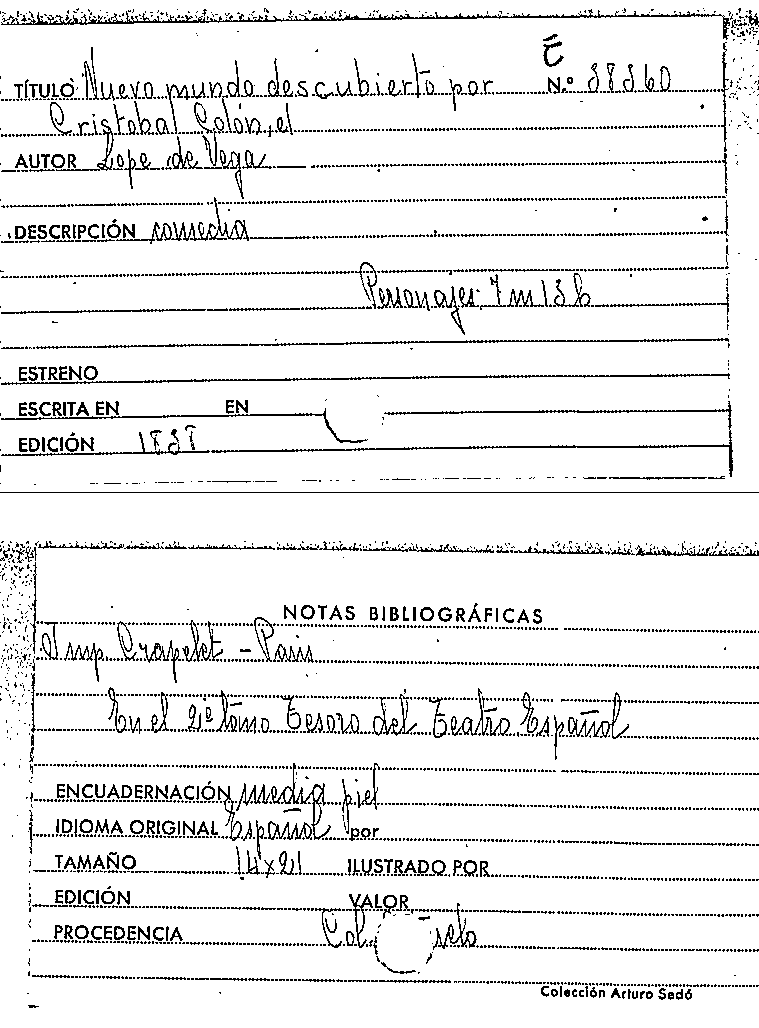 Ē
TÍTULO Nuevo mundo descubierto por N.º 38360
Cristobal Colón, el
AUTOR Lope de Vega
DESCRIPCIÓN comedia
Personajes 7m 13h
ESTRENO
ESCRITA EN EN
EDICIÓN 1838
NOTAS BIBLIOGRÁFICAS
Imp. Crapelet - Paris
En el 2º tomo Tesoro del Teatro Español
ENCUADERNACIÓN media piel
IDIOMA ORIGINAL Español por
TAMAÑO 14x21 ILUSTRADO POR
EDICIÓN VALOR
PROCEDENCIA Col.
Colección Arturo Sedó